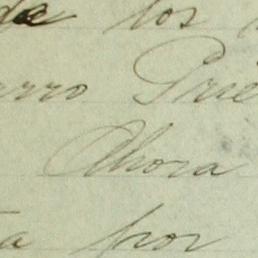 da los
rro Prie
Ahora
a por